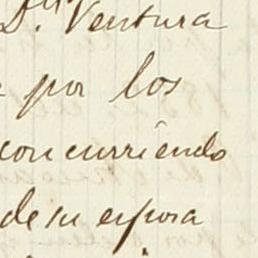 D.ⁿ Ventura
por los
concurriendo
de su esposa